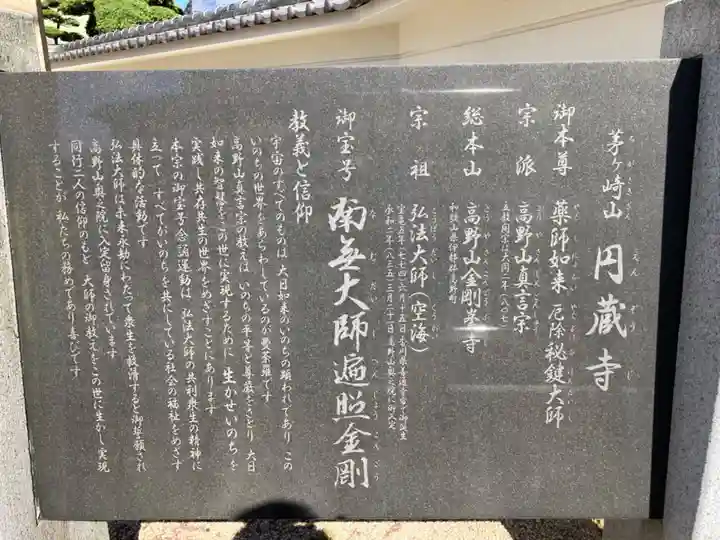 茅ヶ崎山 円蔵寺
ちがさきざん えんぞうじ
御本尊 薬師如来 厄除秘鍵大師
宗派 高野山真言宗
立教開宗は大同二年(八〇七)
総本山 高野山金剛峯寺
和歌山県伊都郡高野町
宗祖 弘法大師(空海)
宝亀五年(七七四)六月十五日香川県善通寺にて御誕生
承和二年(八三五)三月二十一日高野山奥之院に御入定
御宝号 南無大師遍照金剛
なむだいしへんじょうこんごう
教義と信仰
宇宙のすべてのものは 大日如来のいのちの顕われであり この
いのちの世界をあらわしているのが曼荼羅です
高野山真言宗の教えは いのちの平等と尊厳をさとり 大日
如来の智慧をこの世に実現するために 生かせいのちを
実践し共存共生の世界をめざすことにあります
本宗の御宝号念誦運動は 弘法大師の共利群生の精神に
立って すべてがいのちを共にしている社会の福祉をめざす
具体的な活動です
弘法大師は未来永劫にわたって衆生を救済すると御誓願され
高野山奥之院に入定留身されています
同行二人の信仰のもと 大師の御教えをこの世に生かし実現
することが 私たちの務めであり喜びです